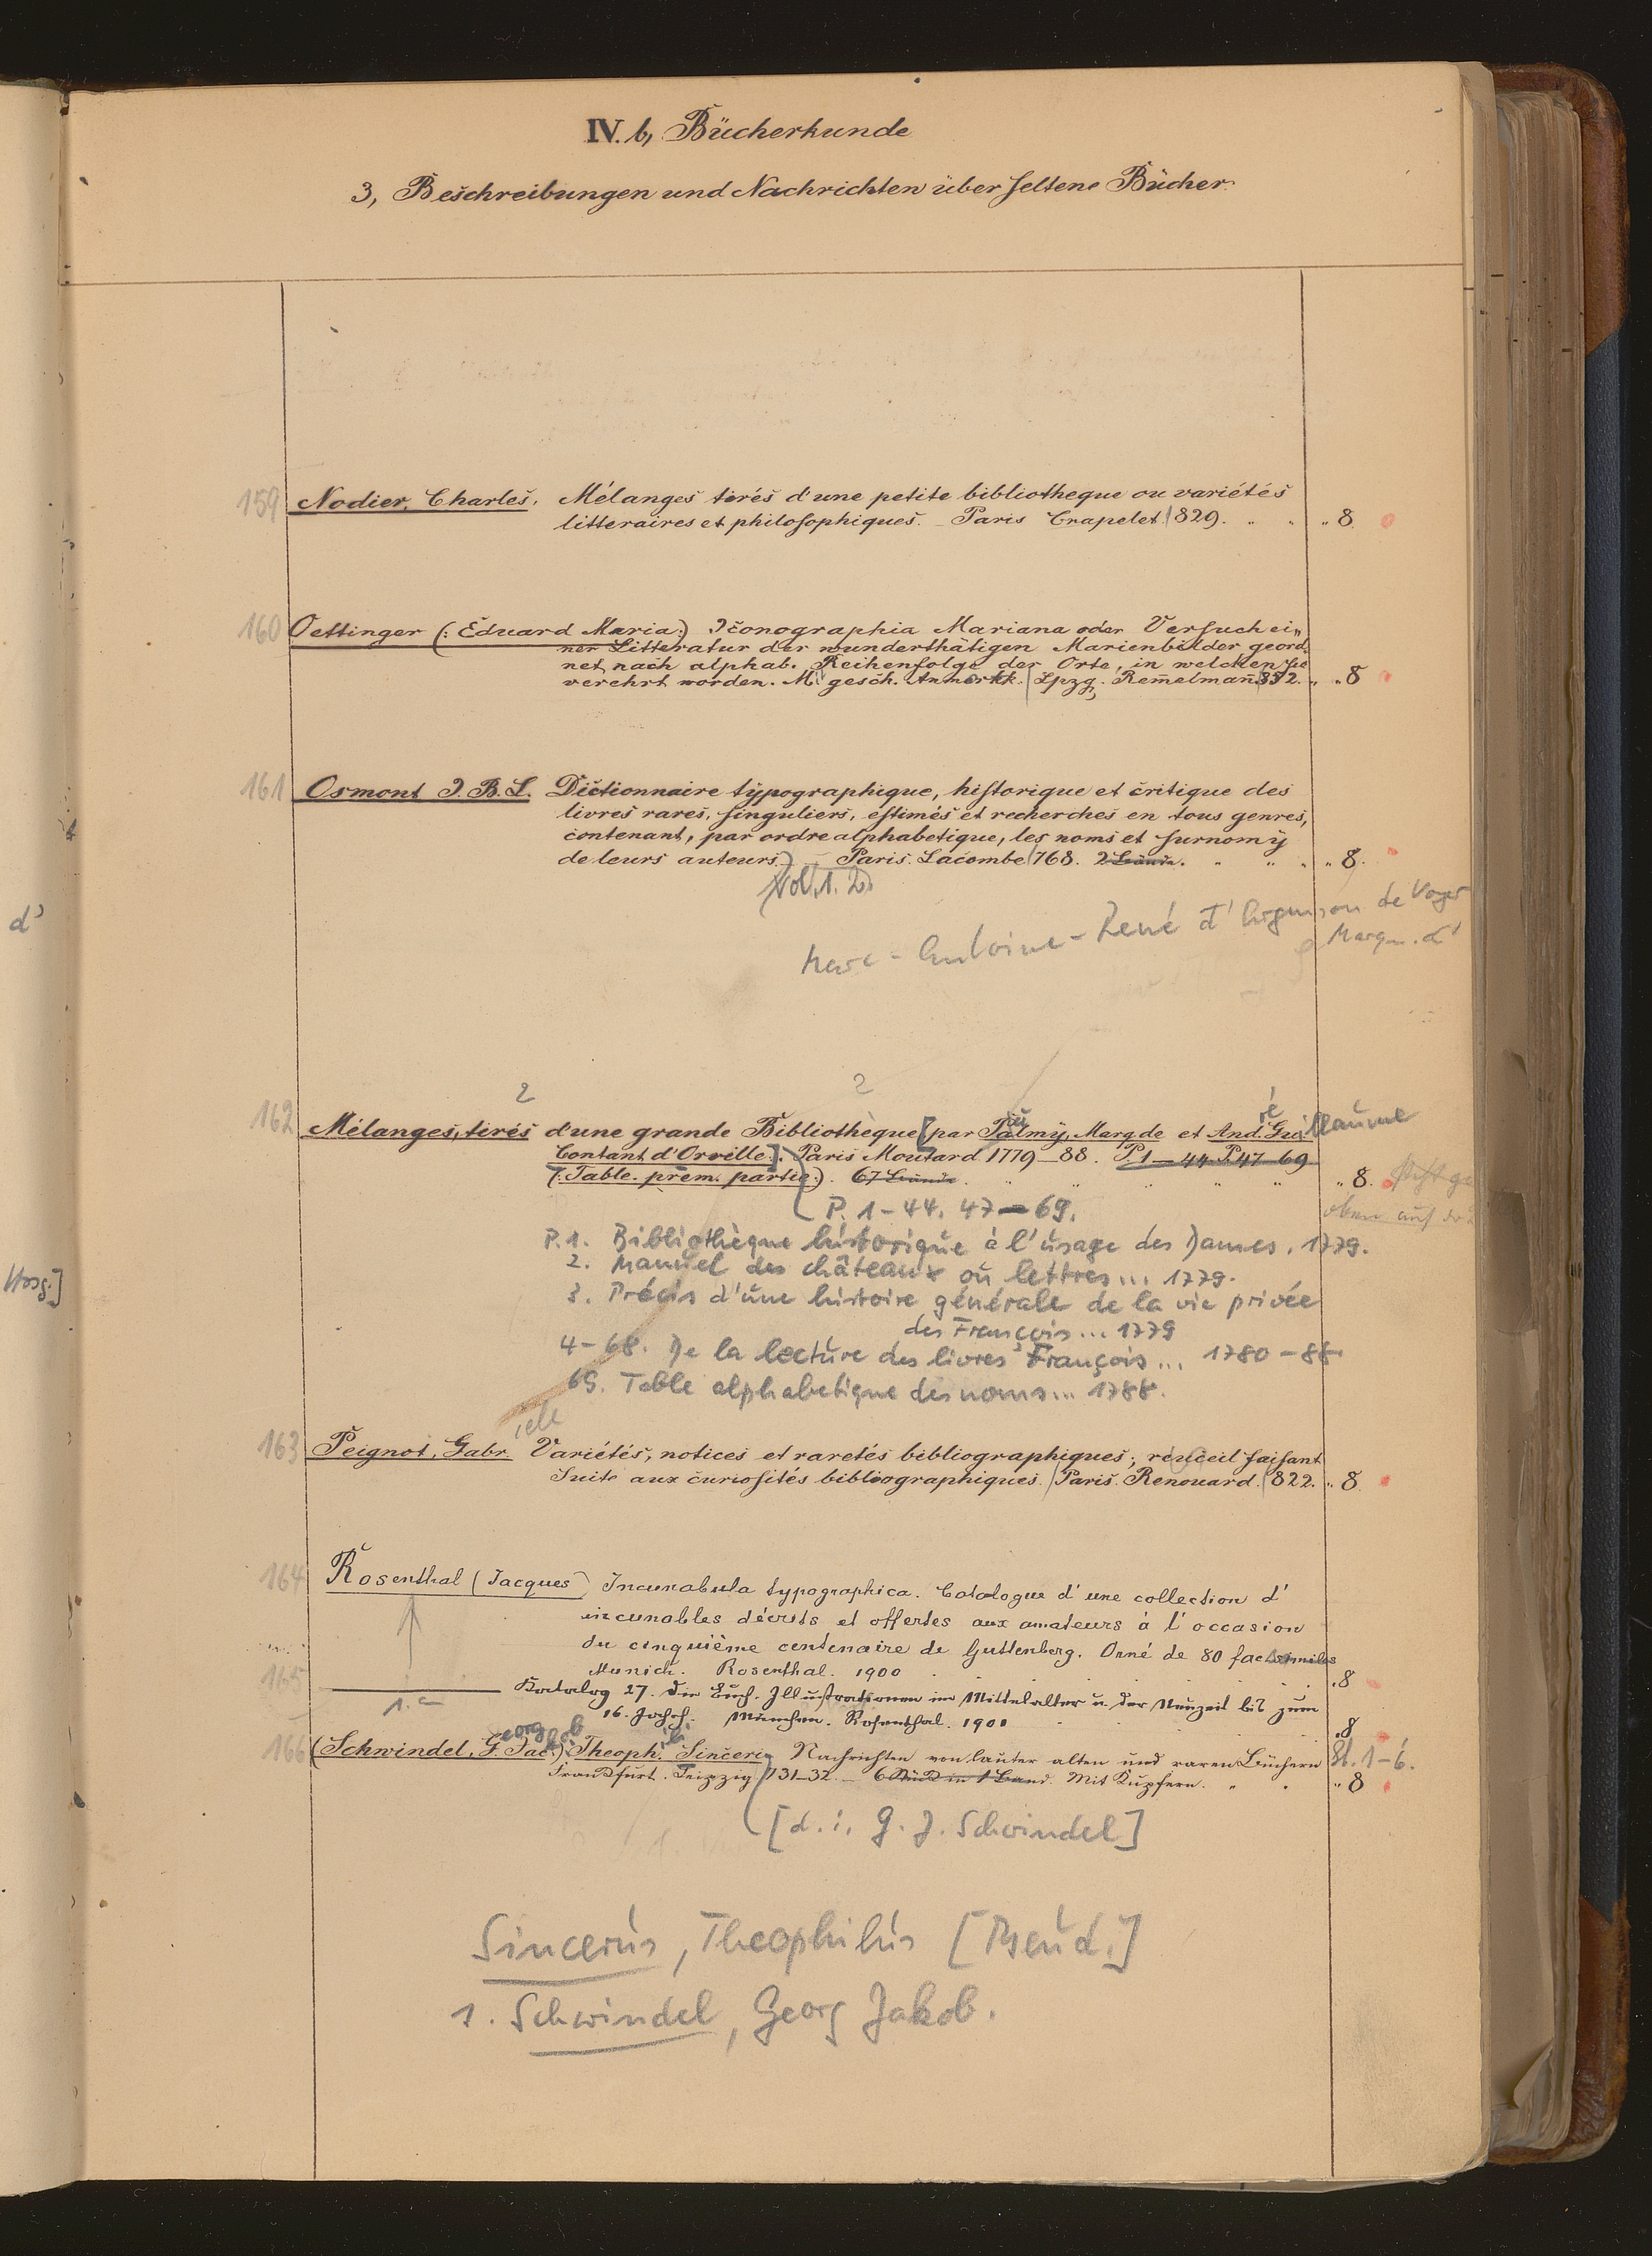 IV. b, Bücherkunde
3, Beschreibungen und Nachrichten über seltene Bücher.
159 Nodier, Charles. Mélanges tirés d'une petite bibliotheque ou variétés
litteraires et philosophiques. Paris Crapelet. 1829. „ 8.
160 Oettinger (: Eduard Maria:) Iconographia Mariana oder Versuch ei„
ner Litteratur der wunderthätigen Marienbilder geord„
net nach alphab. Reihenfolge der Orte, in welchen sie
verehrt worden. M. gesch. Anmerkk. Lpzg. Rem̅elman̅ 852. „ „ 8
161 Osmont J. B. L. Dictionnaire typographique, historique et critique des
livres rares, singuliers, estimés et recherches en tous genres,
contenant, par ordre alphabetique, les noms et surnoms
de leurs auteurs. Paris. Lacombe 1768. 2 Bände. „ 8.
Vol. 1. 2.
d'
Marc-Antoine-René d'Argenson de Voyer
Marqu. d'
2 2
162 Mélanges, tirés d'une grande Bibliothèque [par Paulmy, Marq de et André Guillaume
Contant d'Orville]. Paris Moutard 1779_88. P. 1_44. P. 47_69
(: Table. prem. partie:). 67 Bände. „ 8.
oben auf
P. 1-44. 47-69.
P. 1. Bibliothèque historique à l'usage des Dames. 1779.
2. Manuel des châteaux ou lettres... 1779.
3. Précis d'une histoire générale de la vie privée
des François... 1779
4-68. De la lecture des livres François... 1780-88
69. Table alphabetique des noms... 1788.
Hrsg.]
163 Peignot, Gabrielle Variétés, notices et raretés bibliographiques; recueil faisant
Suite aux curiosités bibliographiques. Paris. Renouard. 1822. „ 8.
164 Rosenthal (Jacques) Incunabula typographica. Catalogue d'une collection d'
incunables décrits et offertes aux amateurs à l'occasion
du cinquième centenaire de Guttenberg. Orné de 80 facsimiles
Munich. Rosenthal. 1900 . 8
165 Katalog 27. Die Buch-Illustrationen im Mittelalter u. der Neuzeit bis zum
16. Jahrh. München. Rosenthal. 1901 . 8
166 (Schwindel, Georg Jacob.) Theophili Sinceri Nachrichten von lauter alten und raren Büchern St. 1-6.
Frankfurt. Leipzig 1731_32. _ 6 Stück in 1 Band. Mit Kupfern. „ 8
[d. i. G. J. Schwindel]
Sincerus, Theophilus [Pseud.]
s. Schwindel, Georg Jakob.